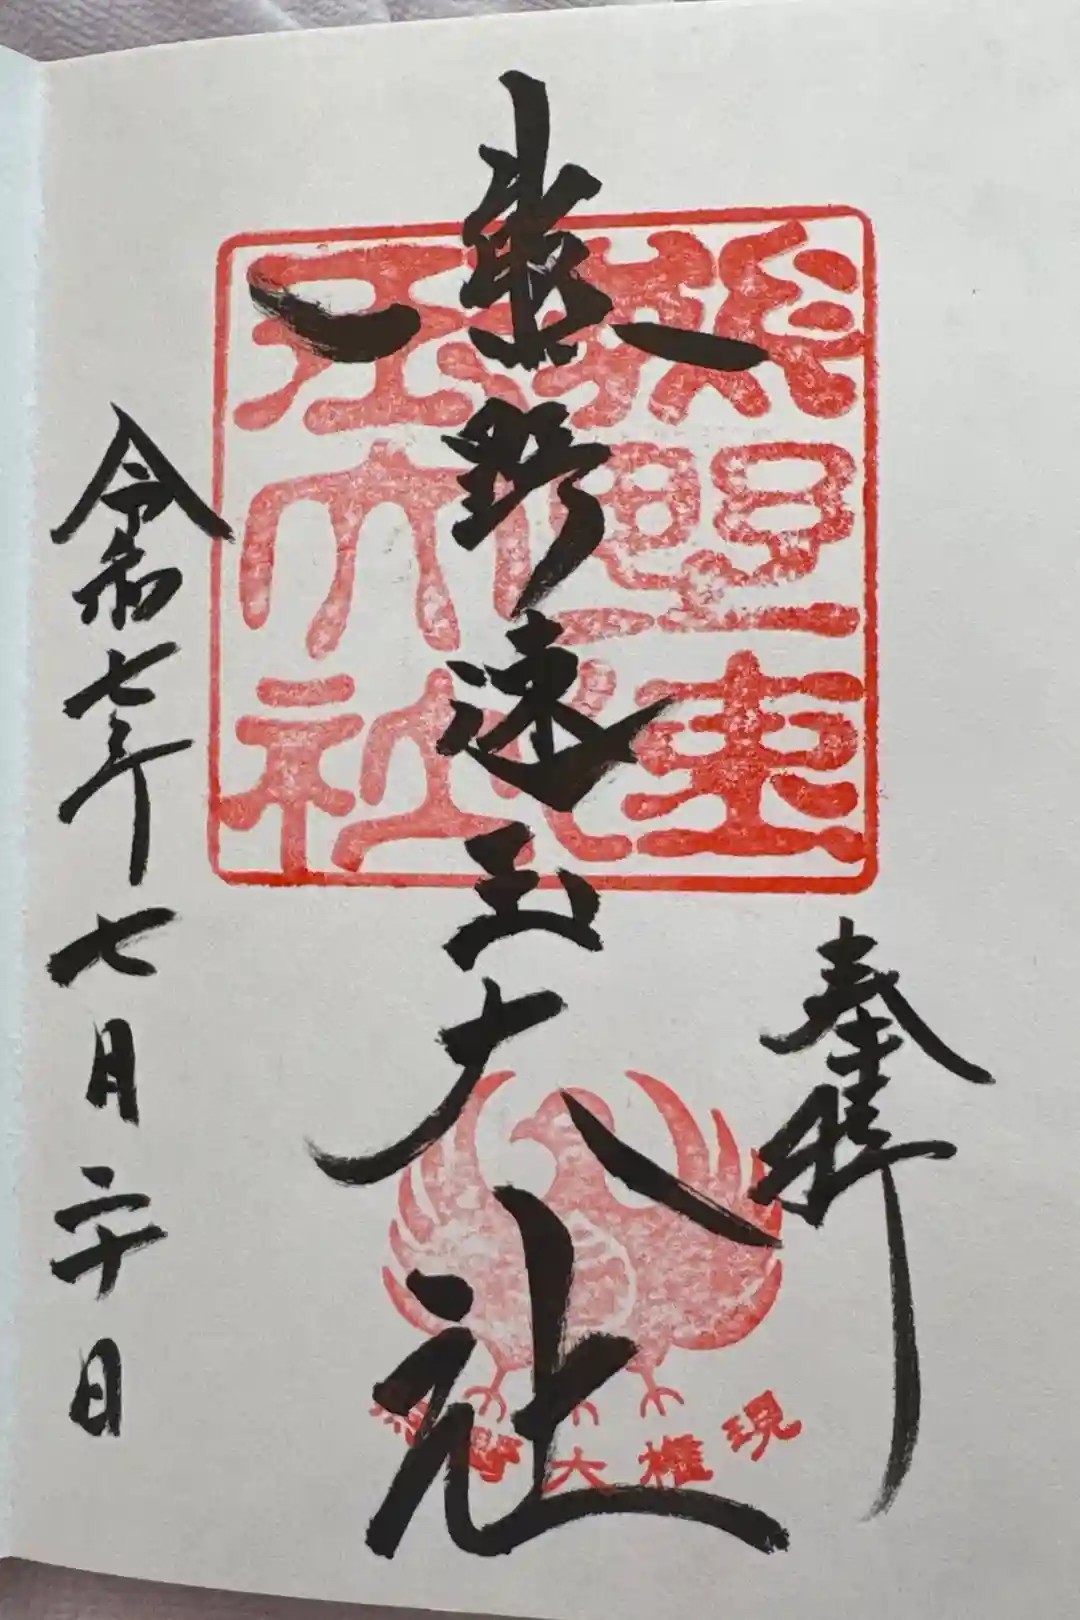 奉拝
熊野速玉大社
令和七年七月二十日
熊野速
玉大社
熊野大権現